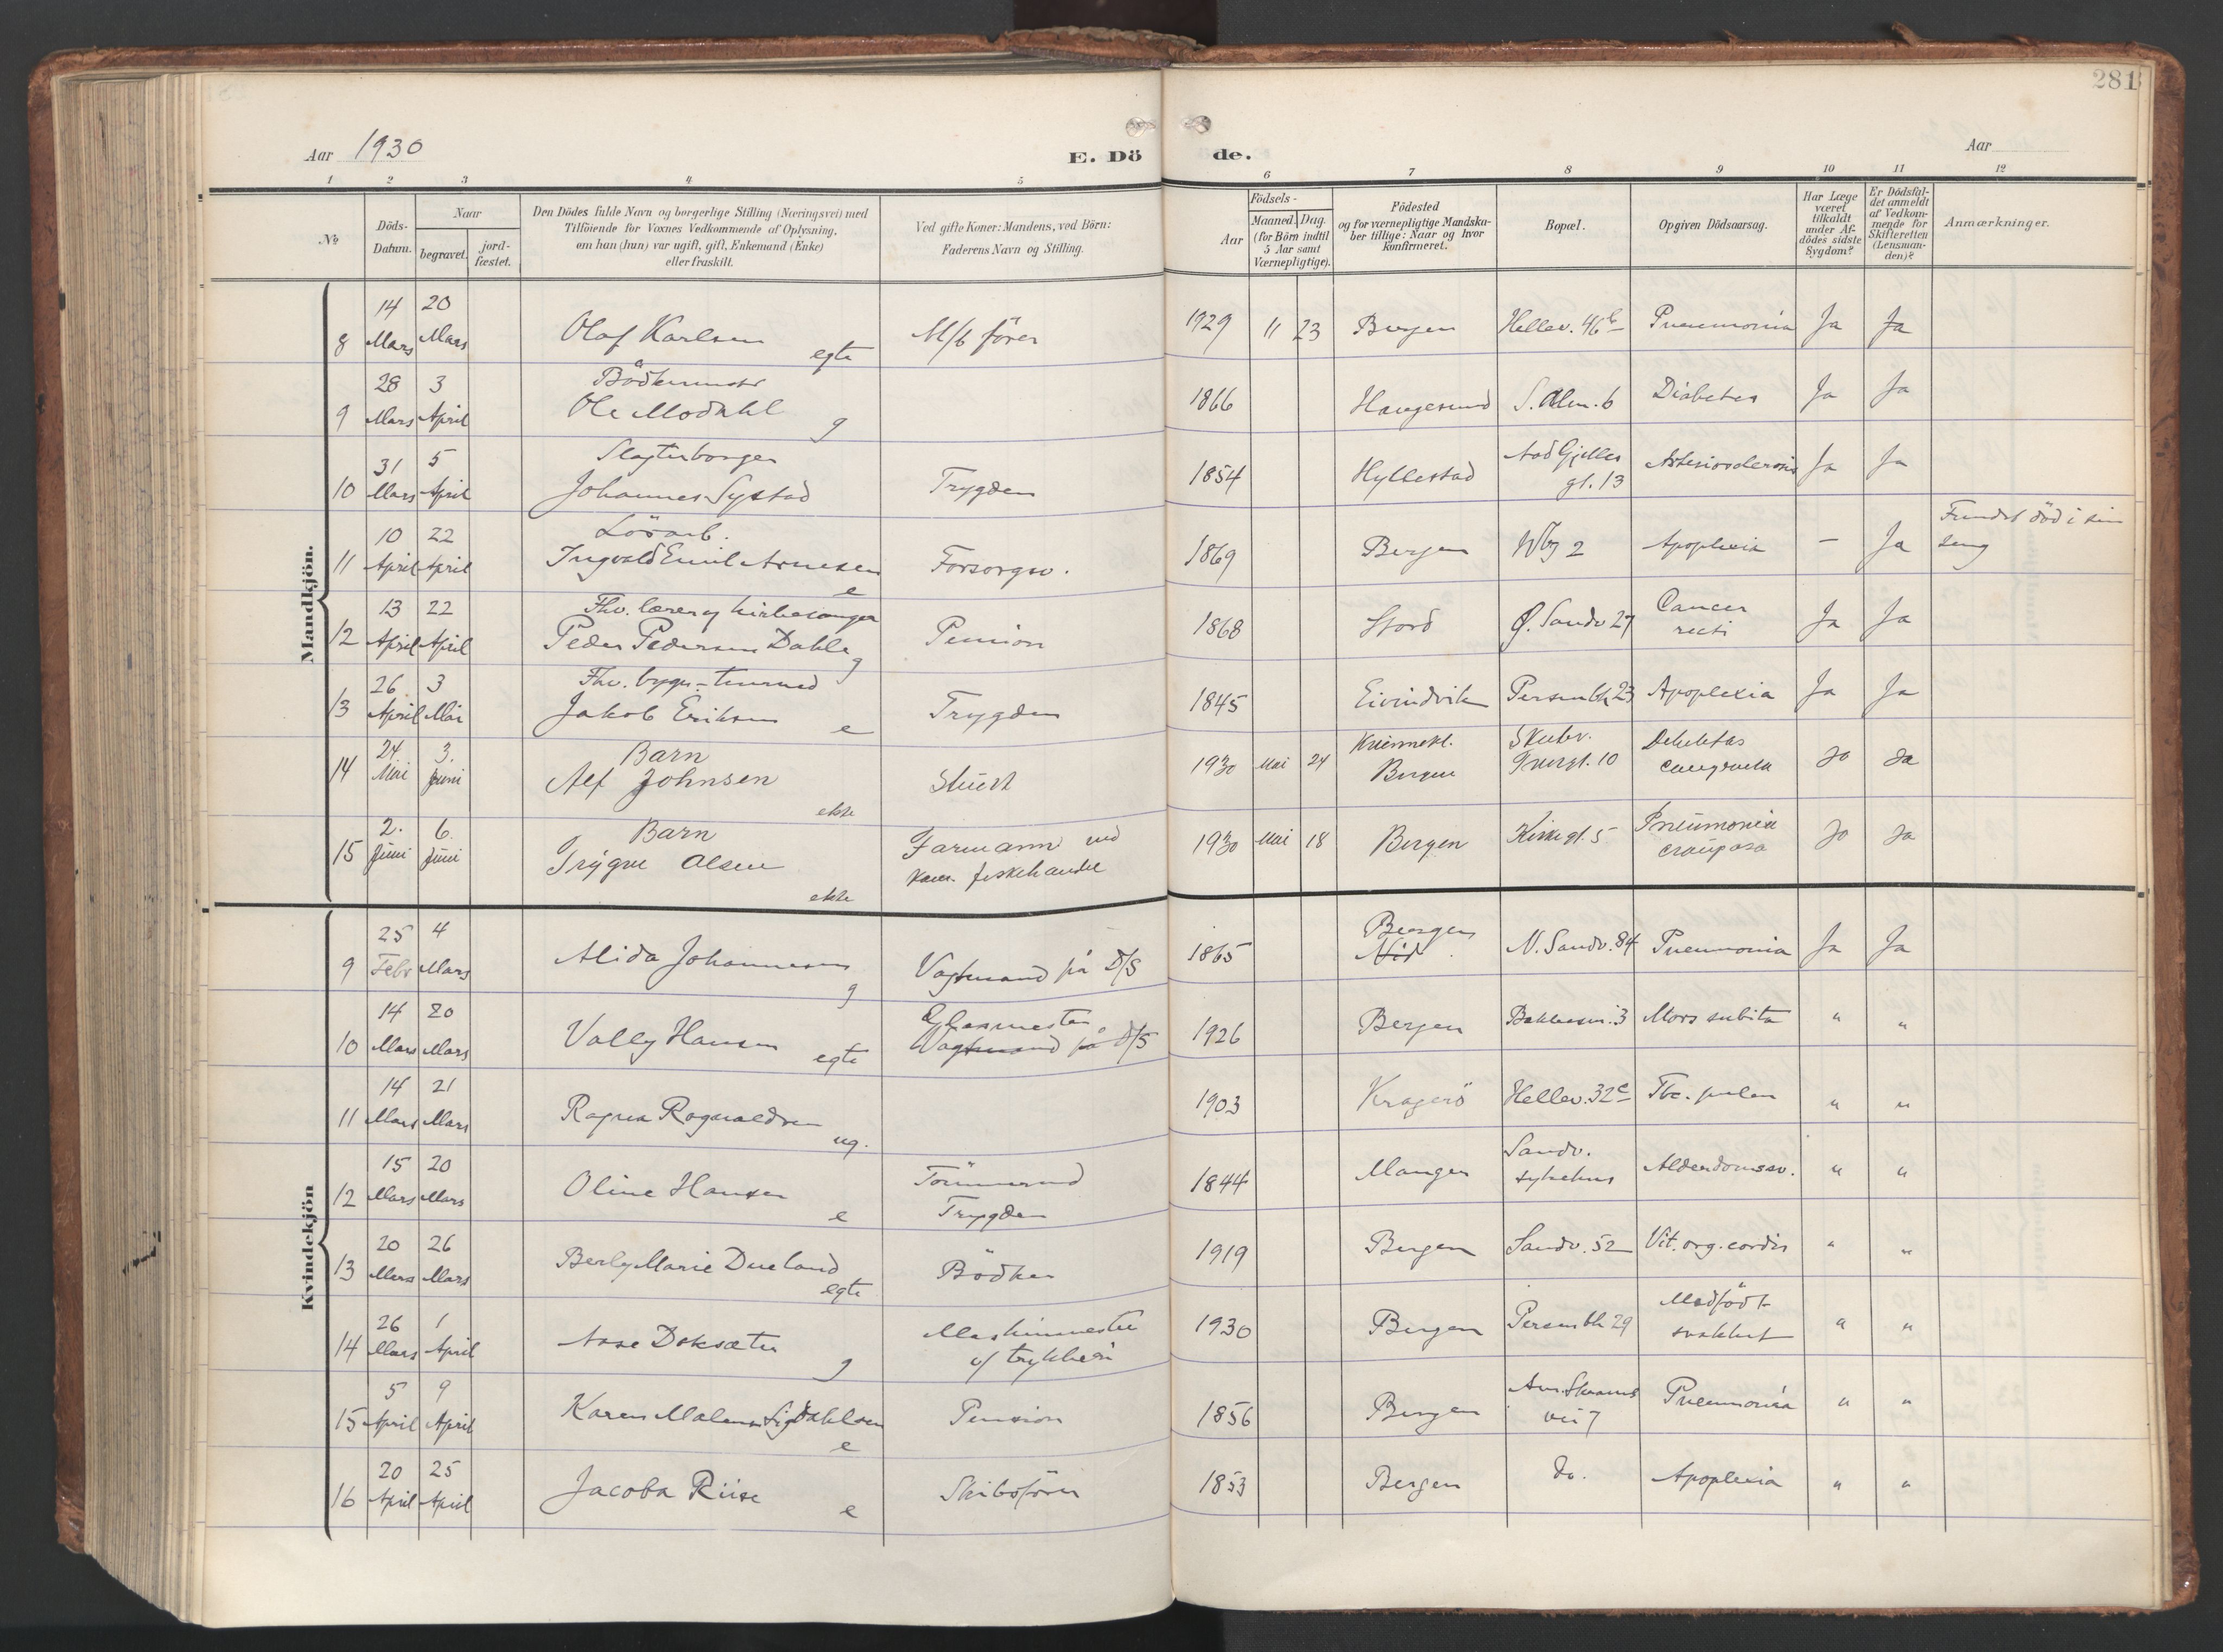 281
Aar 1930
E. Dö
de.
Aar
1 2 3 4 5 6 7 8 9 10 11 12
№
Döds-
Datum.
Naar
begravet.
jord-
fæstet.
Den Dödes fulde Navn og borgerlige Stilling (Næringsvei) med
Tilföiende for Voxnes Vedkommende af Oplysning,
om han (hun) var ugift, gift, Enkemand (Enke)
eller fraskilt.
Ved gifte Koner: Mandens, ved Börn:
Faderens Navn og Stilling.
Födsels-
Aar
Maaned. Dag.
(for Börn indtil
5 Aar samt
Værnepligtige).
Födested
og for værnepligtige Mandska-
ber tillige: Naar og hvor
konfirmeret.
Bopæl.
Opgiven Dödsaarsag.
Har Læge
været
tilkaldt
under Af-
dödes sidste
Sygdom?
Er Dödsfal-
det anmeldt
af Vedkom-
mende for
Skifteretten
(Lensman-
den)?
Anmærkninger.
Mandkjön.
14 20
8 Mars Mars Olaf Karlsen egte M/b förer 1929 11 23 Bergen Hellev. 46b Pneumonia Ja Ja
28 3 Bödkermstr
9 Mars April Ole Modahl g 1866 Haugesund S. Alm. 6 Diabetes Ja Ja
31 5 Slagterborger
10 Mars April Johannes Systad Trygden 1854 Hyllestad Aad Gjelles gt. 13 Arteriosclerosis Ja Ja
10 22 Lösarb.
11 April April Ingvald Emil Arnesen e Forsorgsv. 1869 Bergen Wbg 2 Apoplexia – Ja Fundet död i sin
seng
13 22 Fhv. lærer og kirkesanger
12 April April Peder Pedersen Dahle g Pension 1868 Stord Ø. Sandv 27 Cancer
recti Ja Ja
26 3 Fhv. bygn.-tömmermd
13 April Mai Jakob Eriksen e Trygden 1845 Eivindvik Persenbk 23 Apoplexia Ja Ja
24. 3. Barn
14 Mai Juni Alf Johnsen ekte 1930 Mai 24 Kvinnekl.
Bergen Skutev.
10 Debilitas
congenita Ja Ja
2. 6. Barn
15 Juni Juni Trygve Olsen ekte Formann ved
kom. fiskehandel 1930 Mai 18 Bergen Kirkegt. 5 Pneumonia
crouposa Ja Ja
Kvindekjön
25 4
9 Febr Mars Alida Johannesen g Vagtmand på D/S 1865 Bergen N. Sandv. 84 Pneumonia Ja Ja
14 20
10 Mars Mars Vally Hansen egte Glasmester
Vagtmand på D/S 1926 Bergen Bakkesm. 3 Mors subita " "
14 21
11 Mars Mars Ragna Ragnvaldsen ug. 1903 Kragerö Hellev. 32c Tbc. pulm " "
15 20
12 Mars Mars Oline Hansen e Tömmermd
Trygden 1844 Manger Sandv.
sykehus Alderdomssv. " "
20 26
13 Mars Mars Berly Marie Dueland egte Bödker 1919 Bergen Sandv. 52 Vit. org. cordis " "
26 1
14 Mars April Aase Doksæter g Maskinmester
v/ trykkeri 1930 Bergen Persenbk 29 Medfödt
svakhet " "
5 9
15 April April Karen Malene Sigdahlsen e Pension 1856 Bergen Am. Skrams
vei 7 Pneumonia " "
20 25
16 April April Jacoba Riise e Skibsförer 1853 Bergen do. Apoplexia " "